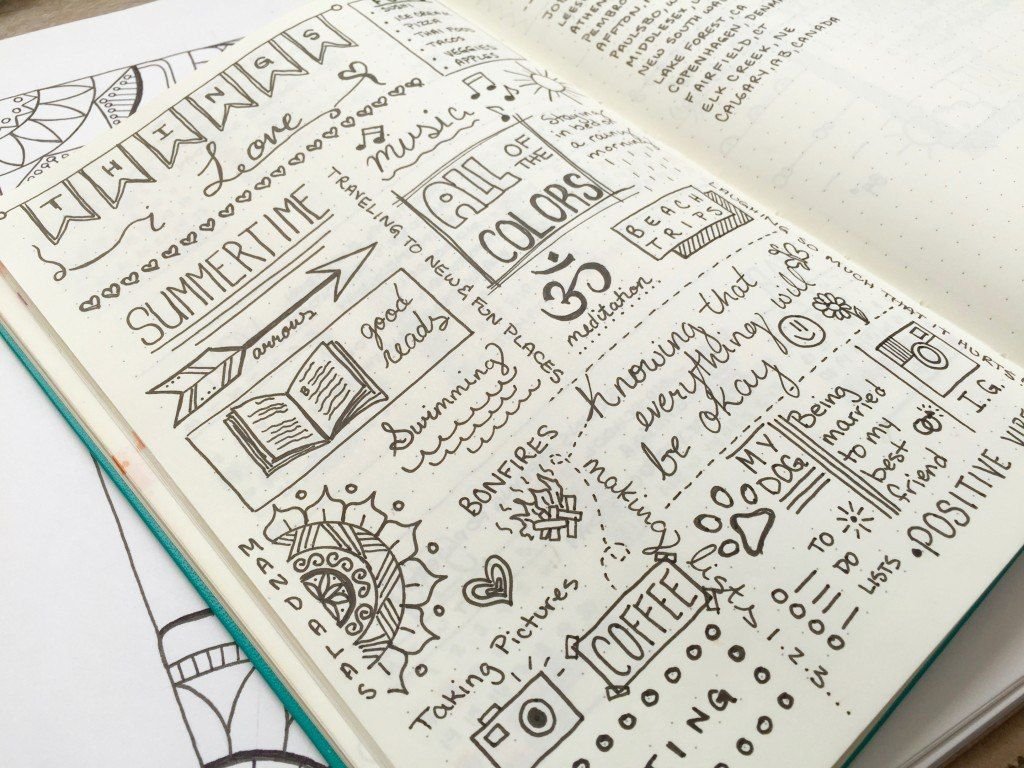 THINGS
I Love
• PIZZA
• THAI FOOD
• TACOS
• VEGGIES
• APPLES
music
SUMMERTIME
TRAVELING TO NEW & FUN PLACES
ALL OF
THE
COLORS
Staying
in bed on
a rainy
morning
BEACH
TRIPS
arrows
good
reads
meditation
LAUGHING SO MUCH THAT IT HURTS
Swimming
Knowing that
everything will
be okay
I.G.
BONFIRES
MY
DOG
Being
married
to my
best
friend
MANDALAS
making lists
1.
2.
3...
TO
DO
LISTS
• POSITIVE
Taking Pictures
COFFEE
TING
LAKE FOREST, CA
COPENHAGEN, DENMA
FAIRFIELD, CT
ELK CREEK, NE
CALGARY, AB, CANADA